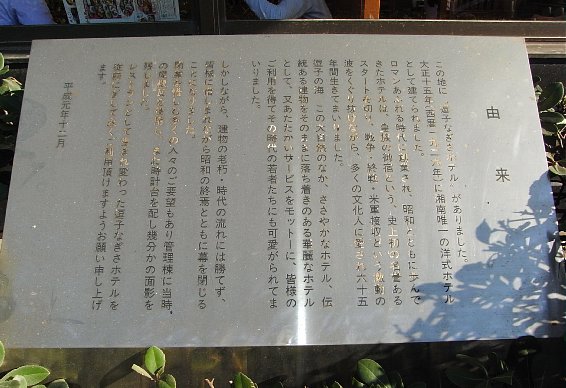 由来
この地に「逗子なぎさホテル」がありました。
大正十五年（西暦一九二六年）に湘南唯一の洋式ホテル
として建てられました。
ロマンあふれる時代に
昭和とともに歩んで
きたホテルは、皇族の御宿という、史上初の名誉ある
スタートだのち、戦争・終戦・米軍接収という激動の
波をくぐり抜けながら、多くの文化人に愛され六十五
年間生きてまいりました。
逗子の海、この大自然のなか、ささやかなホテル、伝
統ある建物をそのままに落ち着きのある華麗なホテル
として、又あたたかいサービスをモットーに、皆様の
ご利用を得てその時代の若者たちにも可愛がられてま
いりました。
しかしながら、建物の老朽・時代の流れには勝てず、
皆様に惜しまれながら昭和の終焉とともに幕を閉じる
ことになりました。
多くの人々のご要望もあり管理棟に当時
の
時計台を配し幾分かの面影を
残しました。
レストランとして生まれ変わった逗子なぎさホテルを
従前にましてご利用頂けますようお願い申し上げ
ます。
平成元年十二月